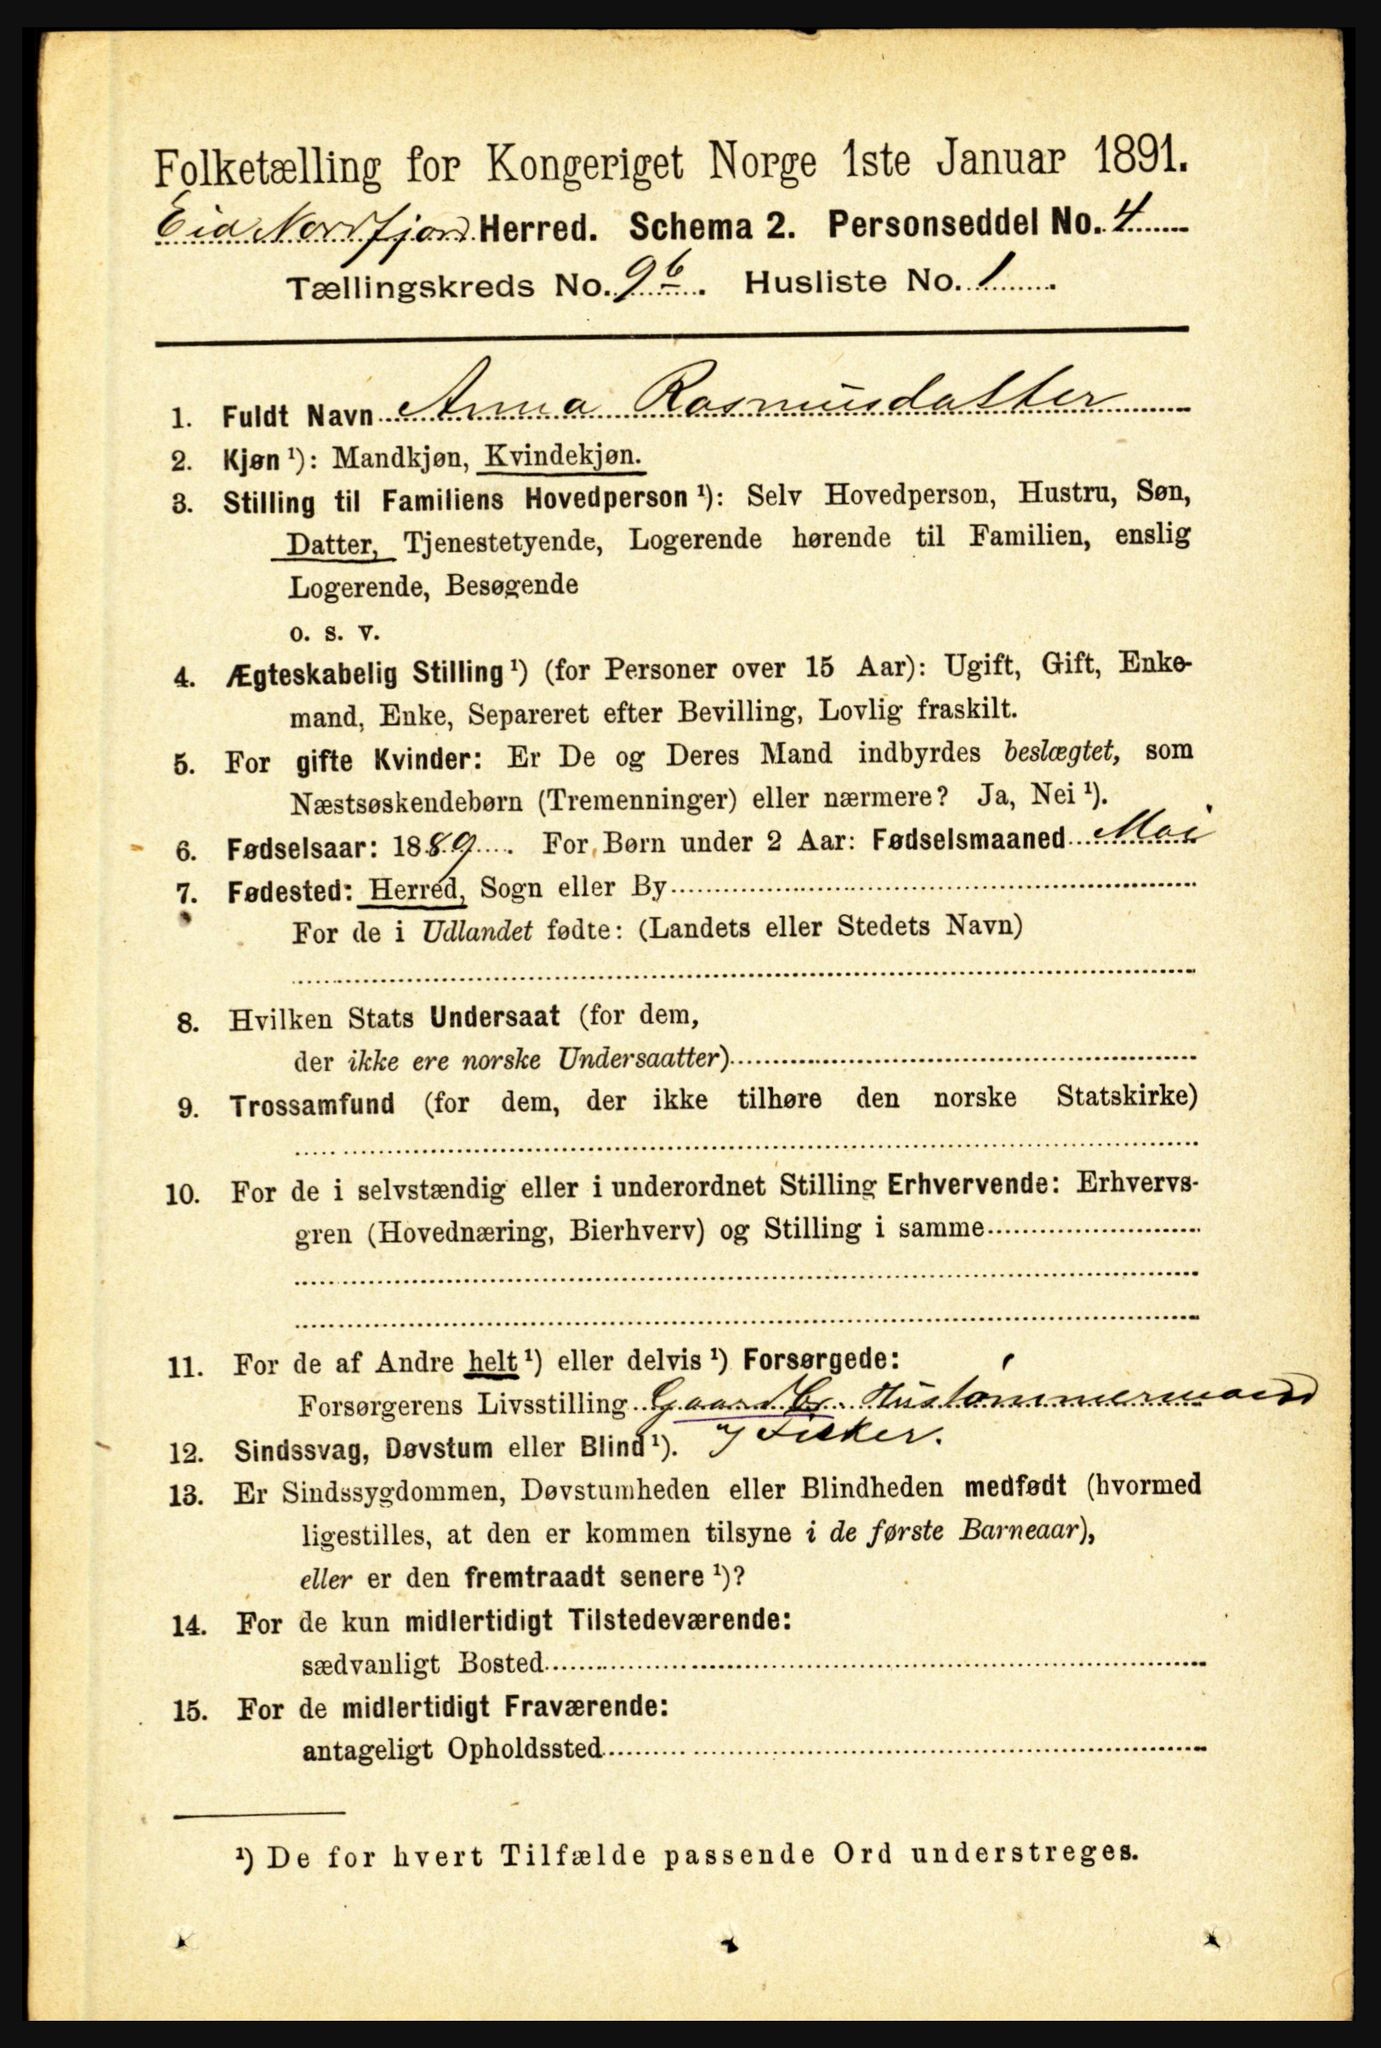 Folketælling for Kongeriget Norge 1ste Januar 1891.
Eid Nordfjord Herred. Schema 2. Personseddel No. 4
Tællingskreds No. 9 b. Husliste No. 1
1. Fuldt Navn Anna Rasmusdatter
2. Kjøn ¹): Mandkjøn, Kvindekjøn.
3. Stilling til Familiens Hovedperson ¹): Selv Hovedperson, Hustru, Søn,
Datter, Tjenestetyende, Logerende hørende til Familien, enslig
Logerende, Besøgende
o. s. v.
4. Ægteskabelig Stilling ¹) (for Personer over 15 Aar): Ugift, Gift, Enke-
mand, Enke, Separeret efter Bevilling, Lovlig fraskilt.
5. For gifte Kvinder: Er De og Deres Mand indbyrdes beslægtet, som
Næstsøskendebørn (Tremenninger) eller nærmere? Ja, Nei ¹).
6. Fødselsaar: 1889. For Børn under 2 Aar: Fødselsmaaned Mai
7. Fødested: Herred, Sogn eller By
For de i Udlandet fødte: (Landets eller Stedets Navn)
8. Hvilken Stats Undersaat (for dem,
der ikke ere norske Undersaatter)
9. Trossamfund (for dem, der ikke tilhøre den norske Statskirke)
10. For de i selvstændig eller i underordnet Stilling Erhvervende: Erhvervs-
gren (Hovednæring, Bierhverv) og Stilling i samme
11. For de af Andre helt ¹) eller delvis ¹) Forsørgede:
Forsørgerens Livsstilling Gaardbr. Hustømmermand
12. Sindssvag, Døvstum eller Blind ¹). Fisker.
13. Er Sindssygdommen, Døvstumheden eller Blindheden medfødt (hvormed
ligestilles, at den er kommen tilsyne i de første Barneaar),
eller er den fremtraadt senere ¹)?
14. For de kun midlertidigt Tilstedeværende:
sædvanligt Bosted
15. For de midlertidigt Fraværende:
antageligt Opholdssted
¹) De for hvert Tilfælde passende Ord understreges.